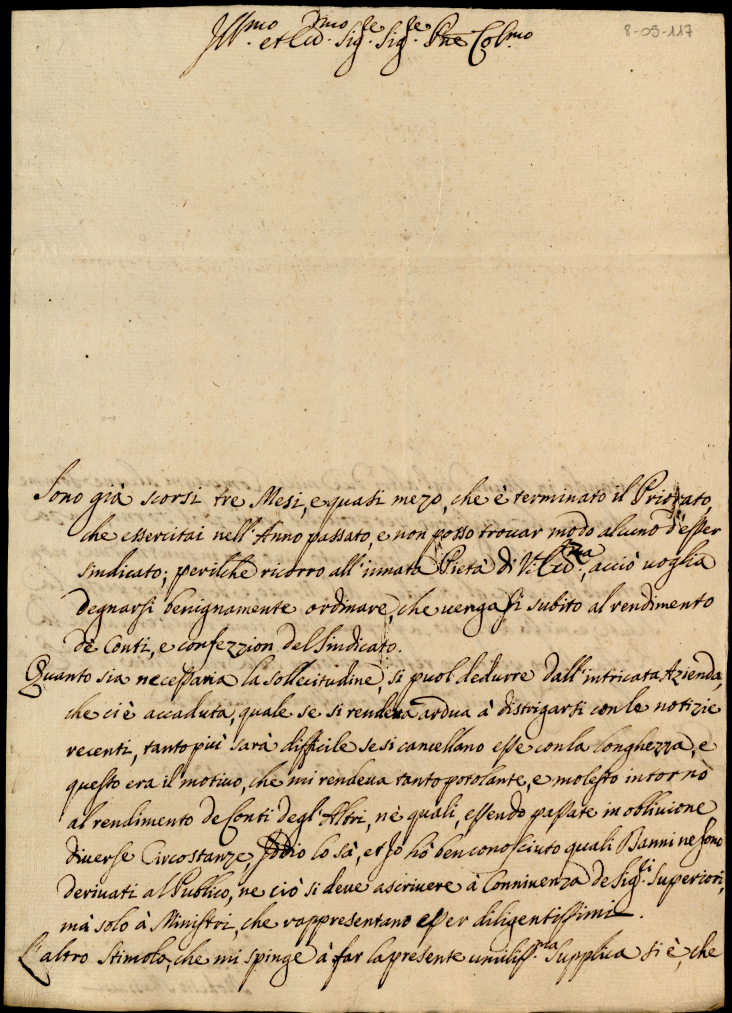 Ill.mo et Ecc.mo Sig.re Sig.re P̃ne Col.mo
8-05-117
Sono già scorsi tre Mesi, e quasi mezo, che è terminato il Priorato,
che essercitai nell'Anno passato, e non posso trovar modo alcuno d'esser
sindicato; perilche ricorro all'innata Pietà di V. Ecc.za, acciò voglia
degnarsi benignamente ordinare, che venga si subito al rendimento
de Conti, e confezzion del Sindicato.
Quanto sia necessaria la sollecitudine, si puol dedurre dall'intricata Azienda,
che ci è accaduta, quale se si rendeva ardua à distrigarsi con le notizie
recenti, tanto più sarà difficile se si cancellano esse con la longhezza, e
questo era il motivo, che mi rendeva tanto petolante, e molesto intorno
al rendimento de Conti degl'Altri, nè quali, essendo passate in oblivione
diverse Circostanze, Iddio lo sà, et Io hò ben conosciuto quali Danni ne sono
derivati al Publico, ne ciò si deve ascrivere à Connivenza de Sig.ri Superiori,
mà solo à Ministri, che rappresentano esser diligentissimi.
L'altro Stimolo, che mi spinge à far la presente umiliss.ma Supplica si è, che